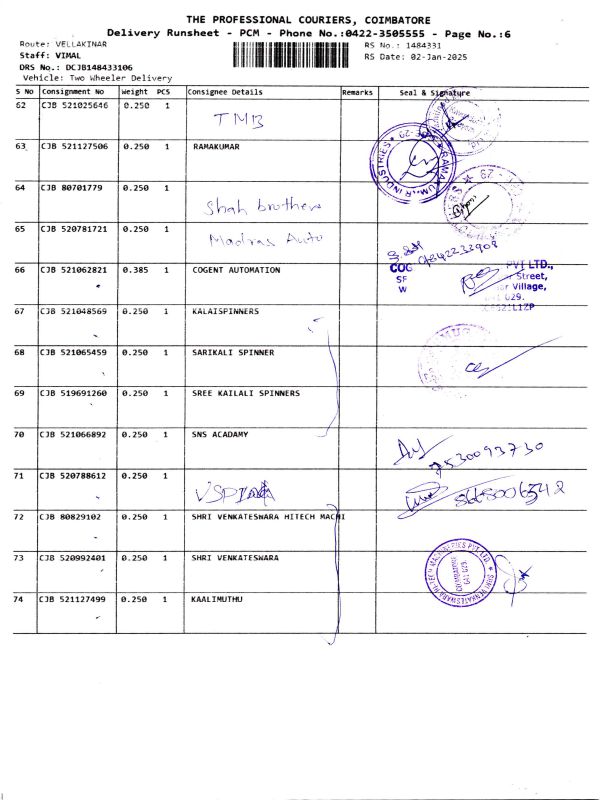 THE PROFESSIONAL COURIERS, COIMBATORE
Delivery Runsheet - PCM - Phone No.:0422-3505555 - Page No.:6
Route: VELLAKINAR
RS No.: 1484331
Staff: VIMAL
RS Date: 02-Jan-2025
DRS No.: DCJB148433106
Vehicle: Two Wheeler Delivery
S No Consignment No Weight PCS Consignee Details Remarks Seal & Signature
62 CJB 521025646 0.250 1 TMB
63 CJB 521127506 0.250 1 RAMAKUMAR
64 CJB 80701779 0.250 1 Shah brothers
65 CJB 520781721 0.250 1 Madras Auto
66 CJB 521062821 0.385 1 COGENT AUTOMATION
COG PVT LTD.,
SF Street,
W Village,
67 CJB 521048569 0.250 1 KALAISPINNERS
68 CJB 521065459 0.250 1 SARIKALI SPINNER
69 CJB 519691260 0.250 1 SREE KAILALI SPINNERS
70 CJB 521066892 0.250 1 SNS ACADAMY
7530093730
71 CJB 520788612 0.250 1
72 CJB 80829102 0.250 1 SHRI VENKATESWARA HITECH MACHI
73 CJB 520992401 0.250 1 SHRI VENKATESWARA
SHRI VENKATESWARA HI-TECH MACHINERIES PVT LTD.
74 CJB 521127499 0.250 1 KAALIMUTHU